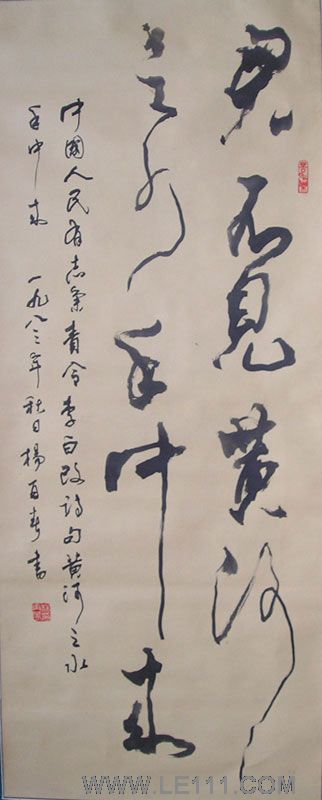 君不見黄河
之水手中来
中國人民有志氣責令李白改詩句黄河之水
手中来 一九八三年秋日楊百春書
WWW.LE111.COM